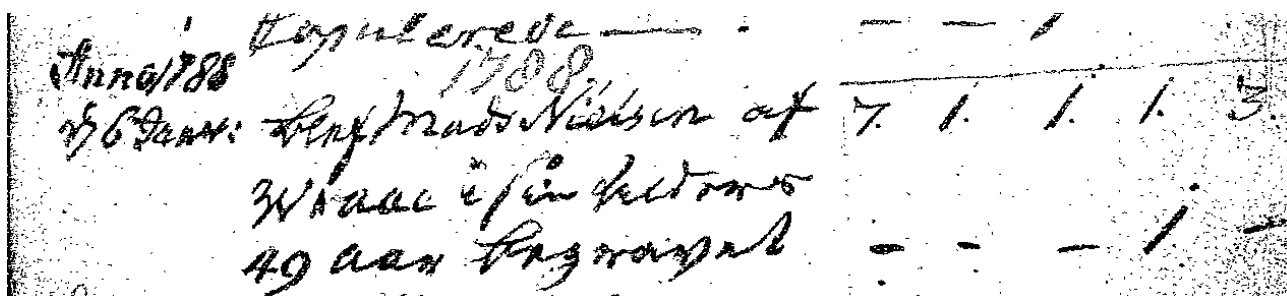 Kopulerede — . — — 1
Anno 1788 1788
d 6 Janr: blef Mads Nielsen af 7. 1. 1. 1. 3.
i sin alders
49 aar begravet — — — 1. —